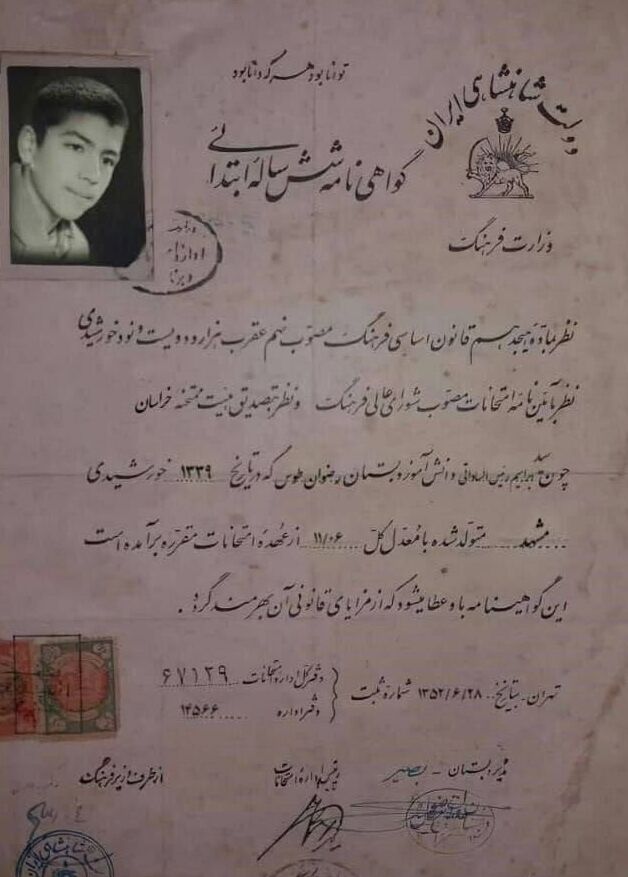 توانا بود هر که دانا بود
دولت شاهنشاهی ایران
گواهی نامه شش ساله ابتدائی
وزارت فرهنگ
نظر بماده هیجدهم قانون اساسی فرهنگ مصوب نهم عقرب هزار و دویست و نود خورشیدی
نظر بآئین نامه امتحانات مصوب شورای عالی فرهنگ و نظر بتصدیق هیئت ممتحنه خراسان
چون سید ابراهیم رئیس الساداتی دانش آموز دبستان رضوان طوس که در تاریخ ۱۳۳۹ خورشیدی
مشهد متولد شده با معدل کل ۱۱/۰۶ از عهده امتحانات مقرره برآمده است
این گواهینامه باو عطا میشود که از مزایای قانونی آن بهره مند گردد.
تهران - بتاریخ ۱۳۵۲/۶/۲۸ شماره ثبت
دفتر کل اداره امتحانات ۶۷۱۲۹
دفتر اداره ۱۴۵۶۶
مدیر دبستان - بصیر
رئیس اداره امتحانات
از طرف وزیر فرهنگ